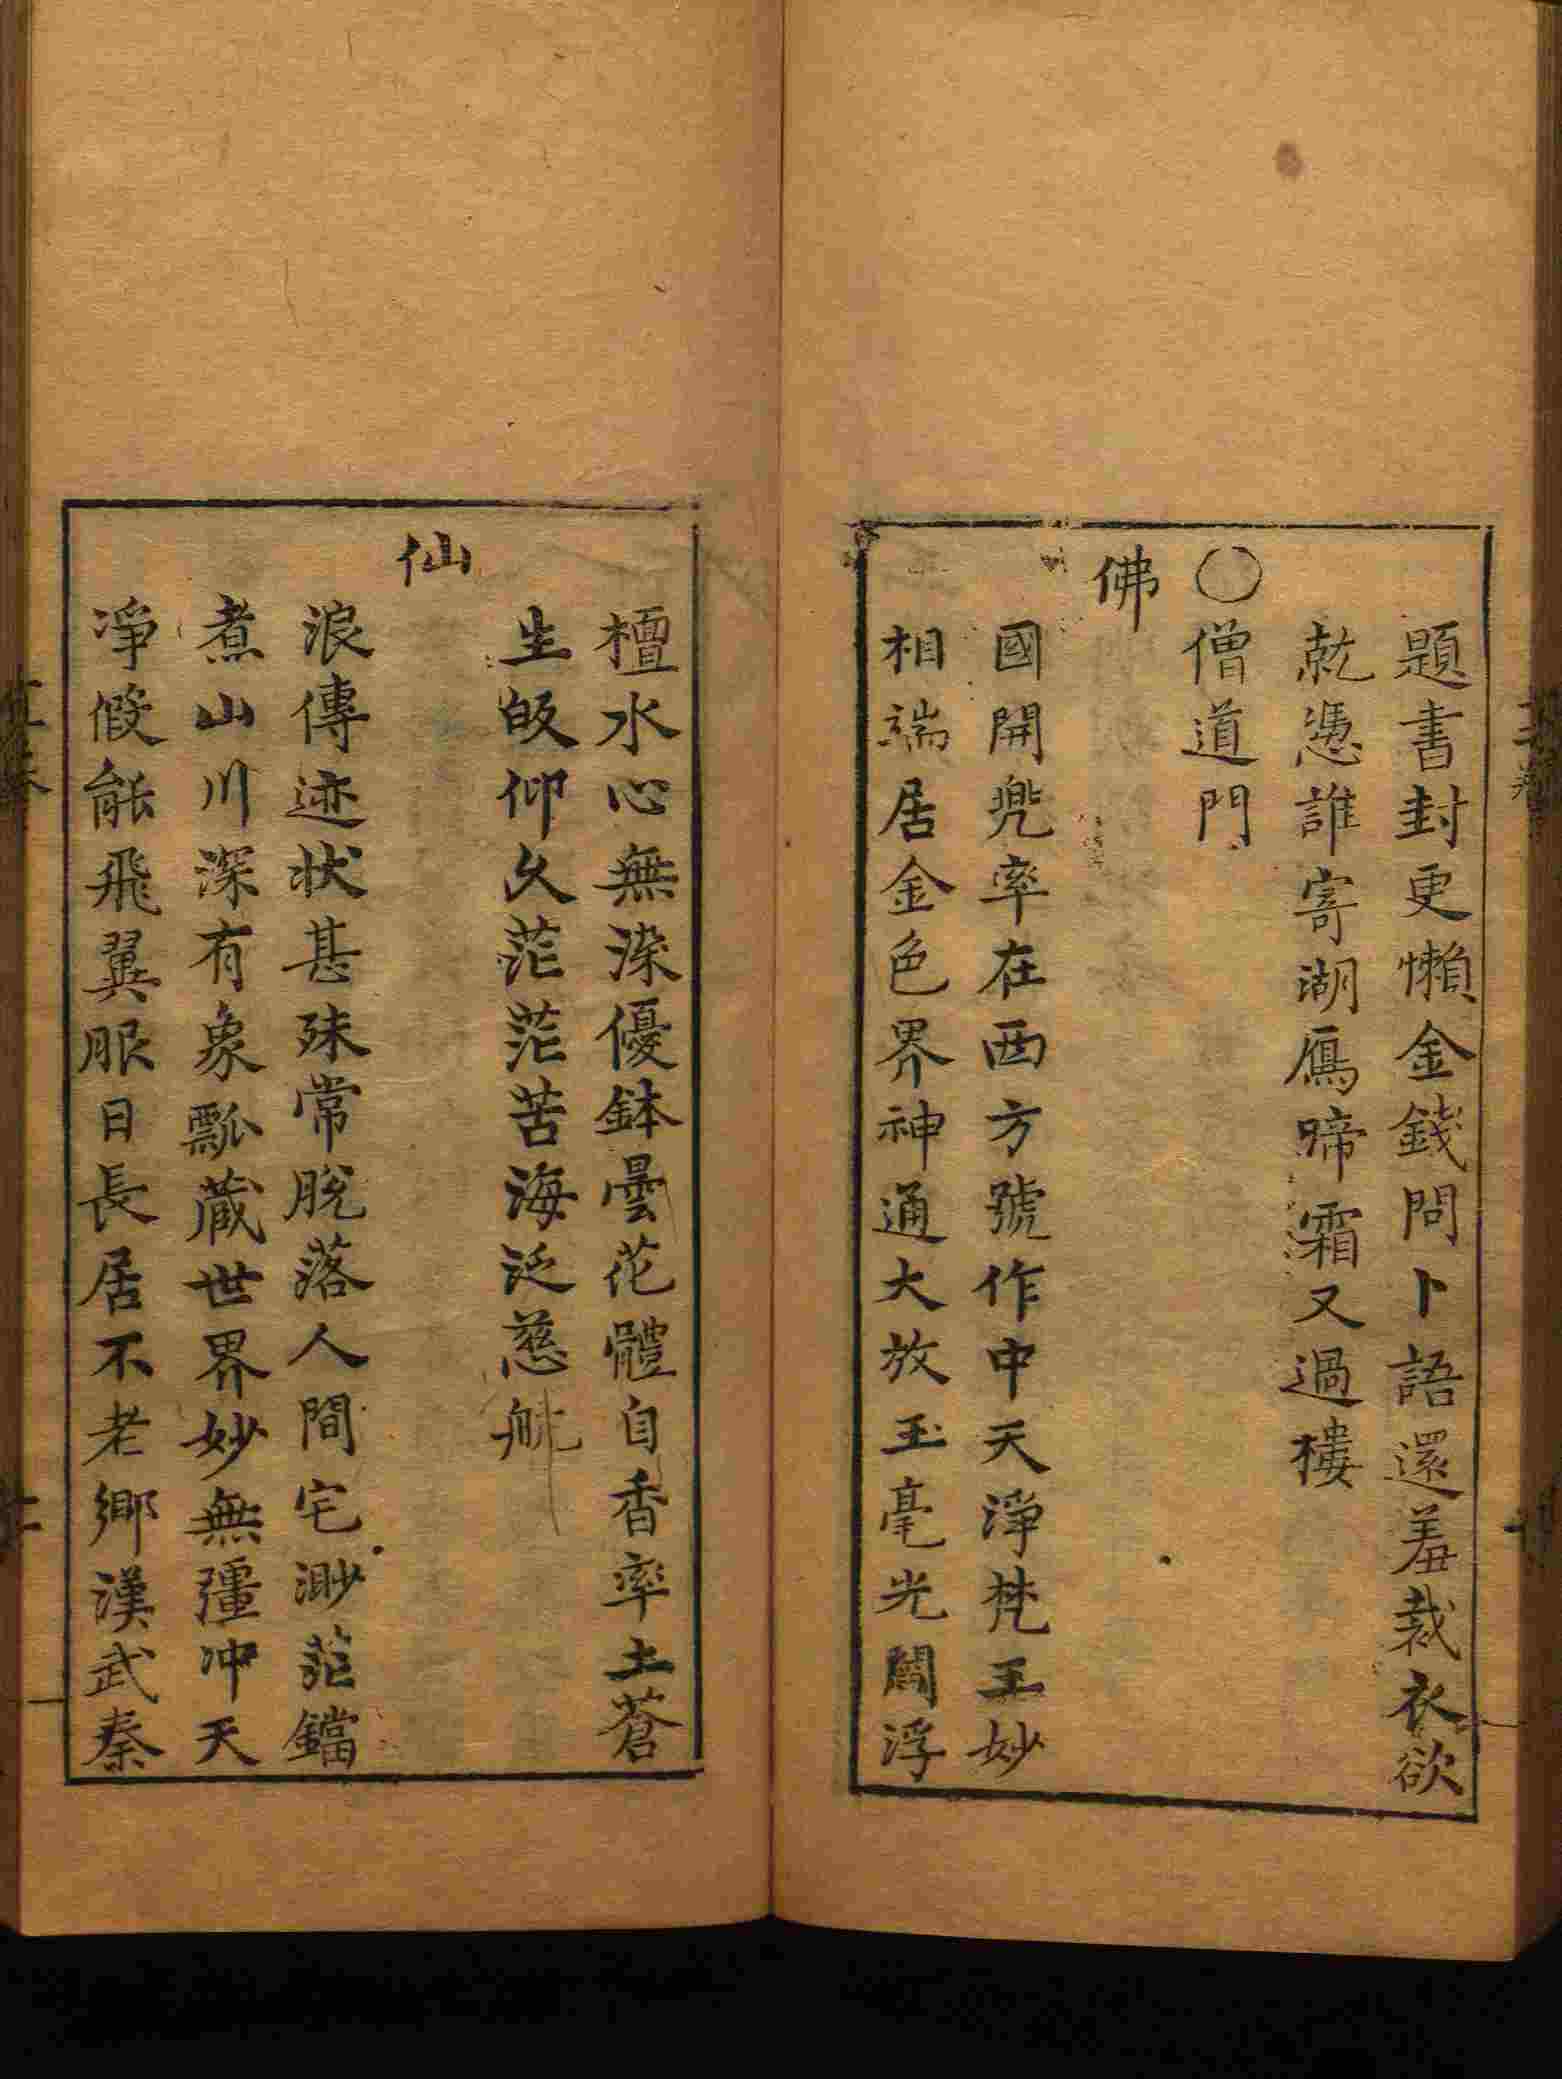 題書封更懶金錢問卜語還羞裁衣欲
就憑誰寄湖鴈啼霜又過樓
○僧道門
佛
國開兠率在西方號作中天淨梵王妙
相端居金色界神通大放玉毫光閻浮
檀水心無染優鉢曇花體自香率土蒼
生皈仰久茫茫苦海泛慈航
仙
浪傳迹状甚殊常脫落人間宅渺茫鐺
煮山川深有象瓢蔵世界妙無彊冲天
凈假能飛翼服日長居不老鄉漢武秦